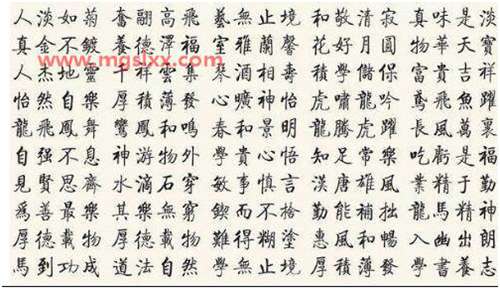 人淡如菊 奮翮高飛 藝無止境 和敬清寂 真味是淡
真金不鍍 養德澤福 室雅蘭馨 花好月圓 物華天寶
人杰地靈 祥雲集 琴酒相壽 積學儲保 富貴吉祥
怡然自樂 厚積薄發 心曠神怡 虎嘯龍吟 鳶飛魚躍
龍飛鳳舞 鸞鳳和鳴 春和景明 龍騰虎躍 長風萬裏
自强不息 神游物外 學貴心悟 知足常樂 吃虧是福
見賢思齊 水滴石穿 敏事慎言 漢唐雄風 業精于勤
爲善最樂 其樂無窮 鍥而不捨 勤能補拙 龍馬精神
厚德載物 難得糊塗 惠風和暢 入幽出朗
馬到功成 道法自然 學無止境 厚積薄發 學書養志
www.mgslxx.com